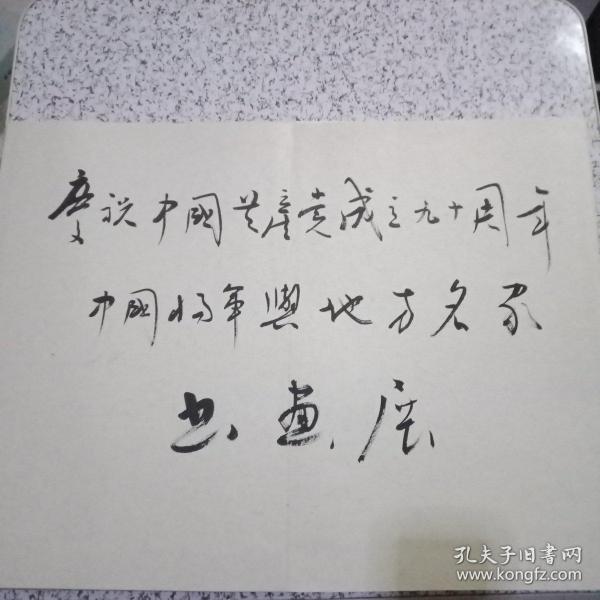 慶祝中國共產党成立九十周年
中國将軍與地方名家
书画展
孔夫子旧书网
www.kongfz.com